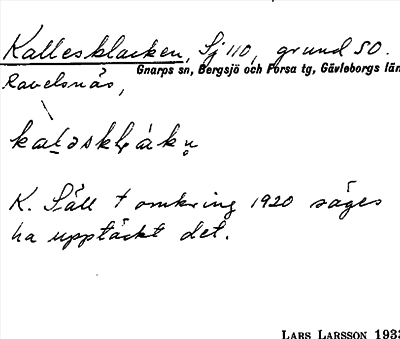 Kallesklacken, Sj 110, grund SO.
Gnarps sn, Bergsjö och Forsa tg, Gävleborgs län
Ravelsnäs,
K. Säll † omkring 1920 säges
ha upptäckt det.
LARS LARSSON 1933